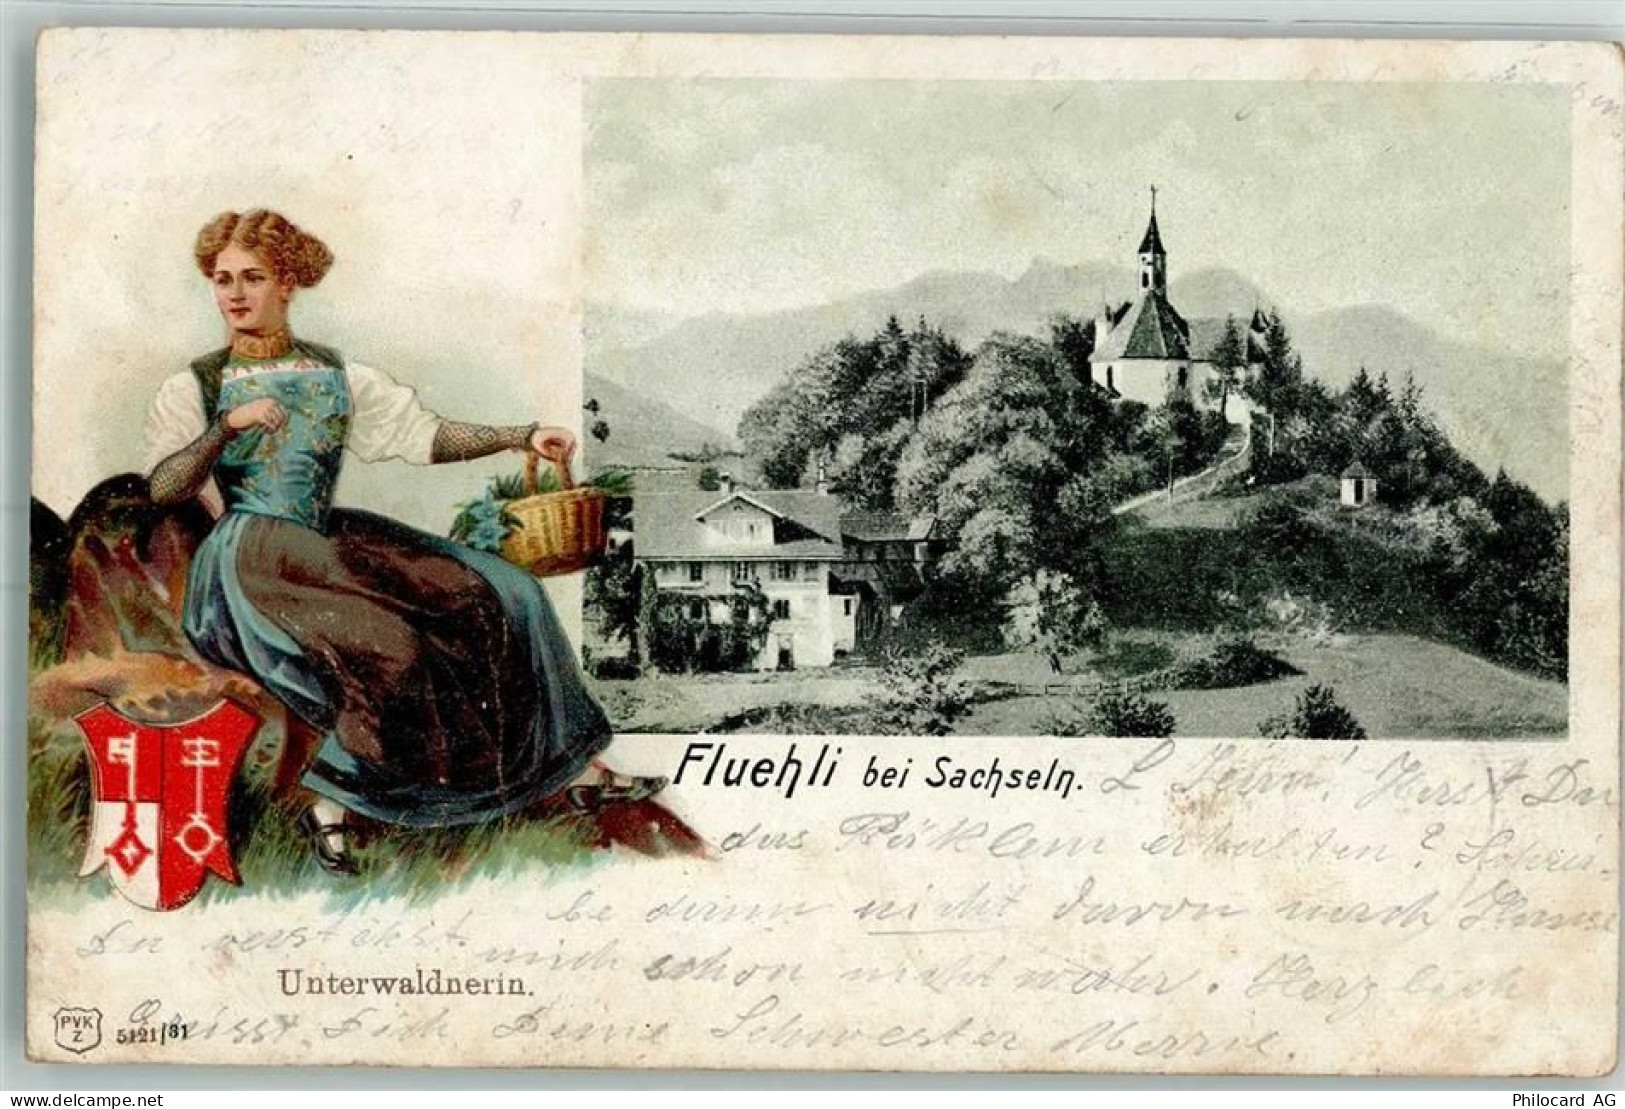 Fluehli bei Sachseln.
L. ! Hast Du
das erhalten? Schrei-
be dann nicht davon nach Hause
Du verstehst mich schon nicht wahr. Herzlich
Unterwaldnerin.
Grüsst Dich Deine Schwester
PVK
Z
5121/31
www.delcampe.net
Philocard AG